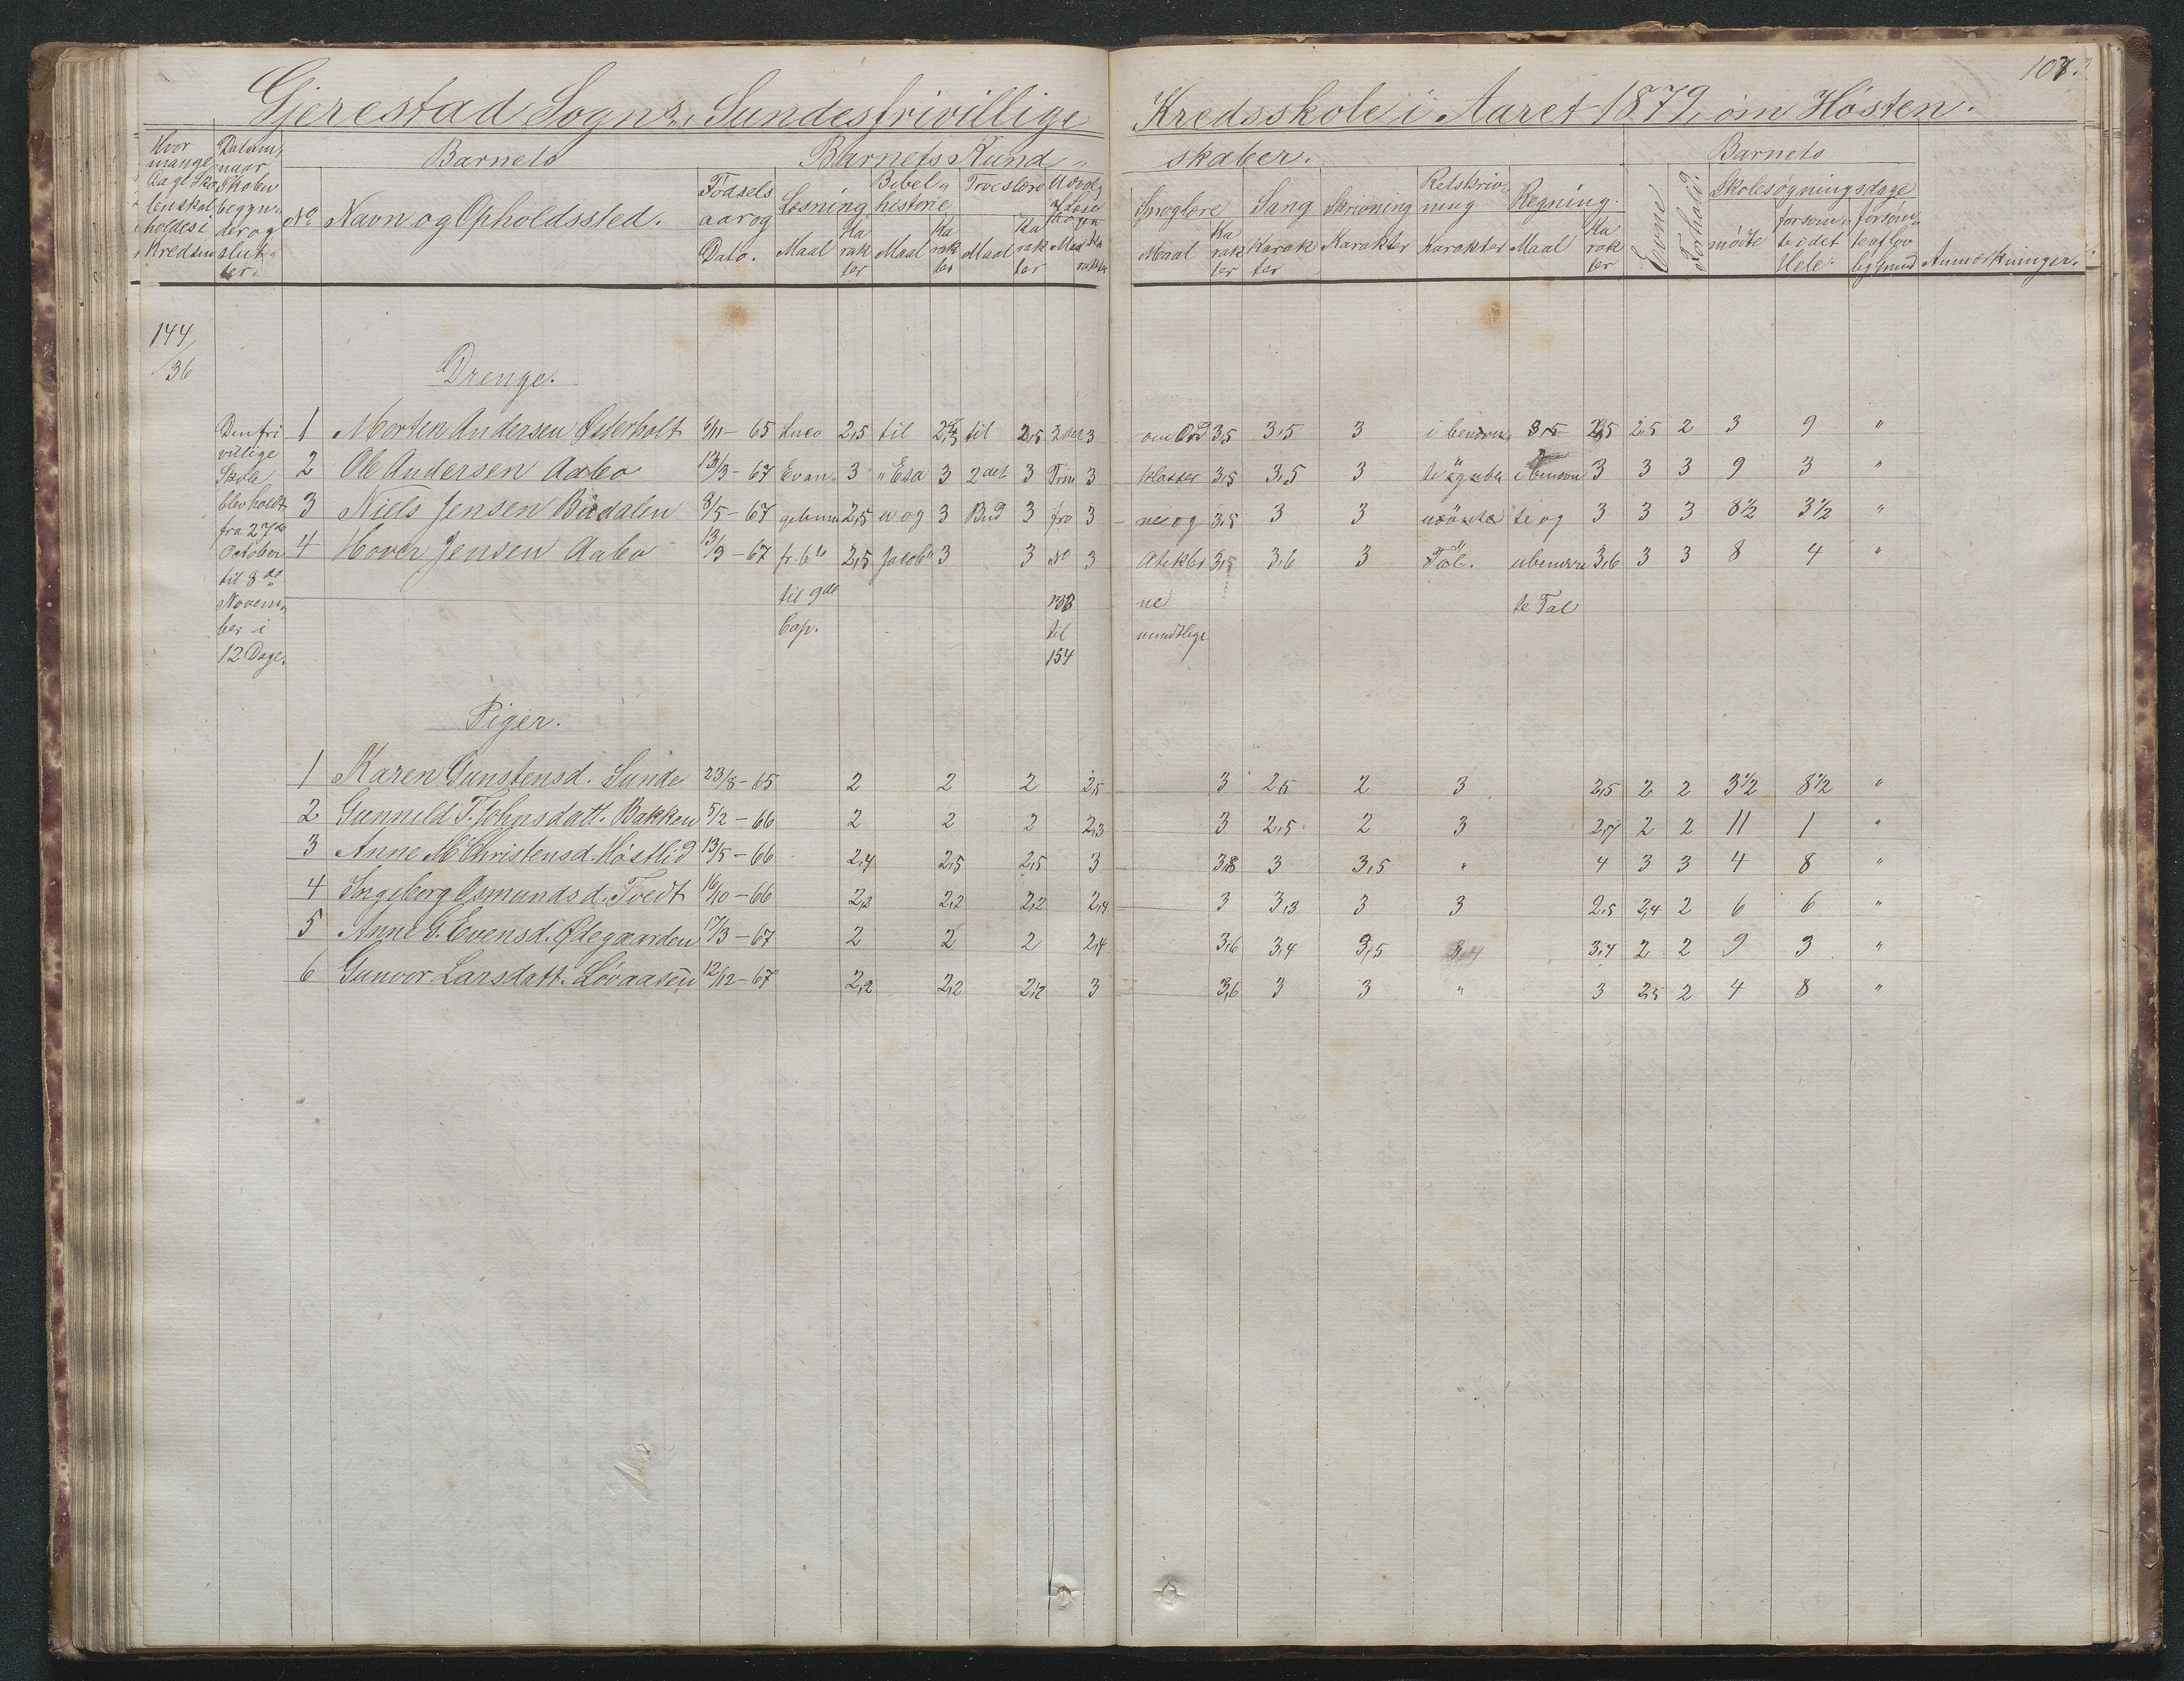 107.
Gjerestad Sogns, Sundes frivillige Kredsskole i Aaret 1879, om Høsten.
Hvor mange Dage Skolen skal holdes i Kredsen
Datum, naar Skolen begynder og slutter.
Barnets
Barnets Kundskaber.
Barnets
No
Navn og Opholdssted.
Fødselsaar og Dato.
Læsning
Bibelhistorie
Troeslære
Sproglære
Sang
Skrivning
Retskrivning
Regning.
Evne
Forhold.
Skolesøgningsdage
Maal Karakter Maal Karakter Maal Karakter Maal Karakter
Maal Karakter Karakter Karakter Karakter Maal Karakter
mødte
forsømte i det Hele
forsømte af lovlig Grund
Anmærkninger.
144/36
Drenge.
Den frivillige Skole blev holdt fra 27de October til 8de November i 12 Dage.
1 Morten Andersen Østerholt 6/11-65 Luca 2,5 til 2,5 til 2,5 3 om Ord 3,5 3,5 3 i benævn 2,5 2,5 2 3 9 "
2 Ole Andersen Aabo 13/3-67 Evan 3 Esa 3 2det 3 Trin 3 klasser 3,5 3,5 3 i benævn 3 3 3 9 3 "
3 Niels Jensen Budalen 8/5-67 gelium 2,5 og 3 Bud 3 fra 3 ne og 3,5 3 3 te og 3 3 3 8 1/2 3 1/2 "
4 Hover Jensen Aabo 13/3-67 fr. 6te 2,5 Jacob 3 3 No 3 3,5 3,6 3 Tal. ubenævn 3,6 3 3 8 4 "
til 9de ne te Tal
Cap. til mundtlige
154
Piger.
1 Karen Gunstensd. Sunde 23/8-65 2 2 2 2,5 3 2,5 2 3 2,5 2 2 3 1/2 8 1/2 "
2 Gunnild T. Johnsdatt. Bakken 5/2-66 2 2 2 2,3 3 2,5 2 3 2,7 2 2 11 1 "
3 Anne M Christensd. Høstlid 13/5-66 2,4 2,5 2,5 3 3,8 3 3,5 " 4 3 3 4 8 "
4 Ingeborg Osmundsd. Tvedt 16/10-66 2,2 2,2 2,2 2,4 3 3,3 3 3 2,5 2,4 2 6 6 "
5 Anne G. Evensd. Ødegaarden 17/3-67 2 2 2 2,4 3,6 3,4 3,5 3,4 3,4 2 2 9 3 "
6 Gunvor Larsdatt. Løvaasen 12/12-67 2,2 2,2 2,2 3 3,6 3 3 " 3 2,5 2 4 8 "